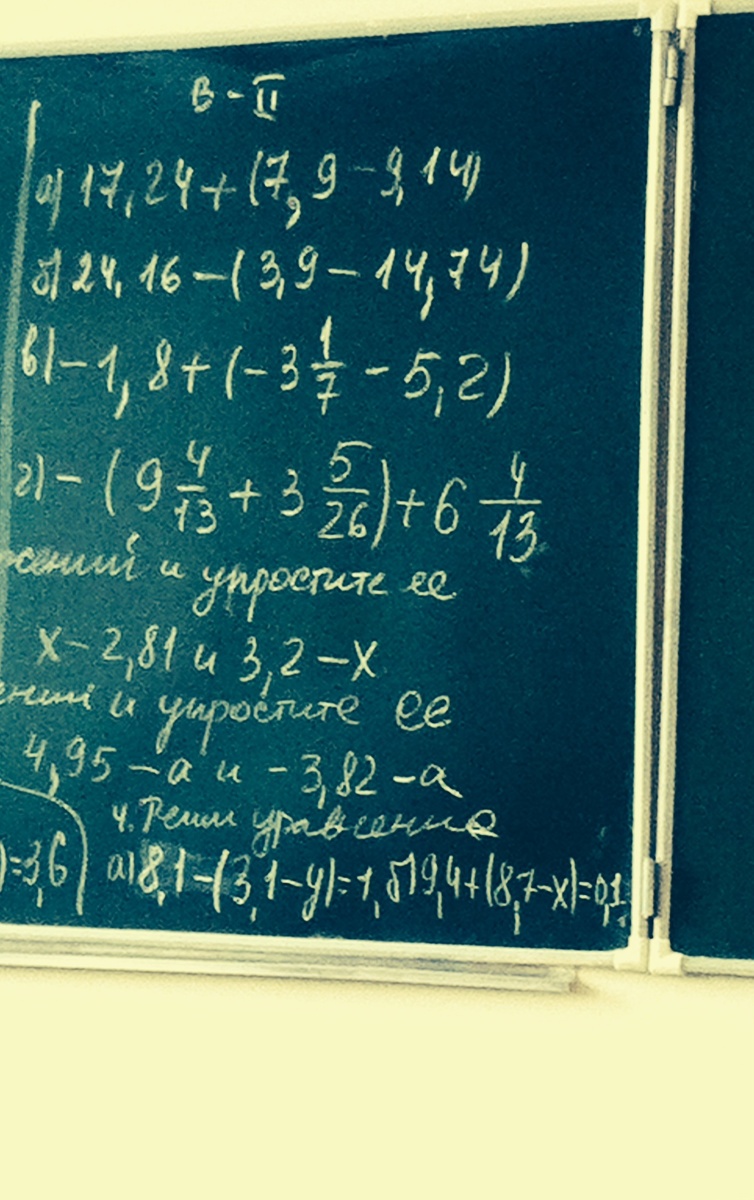 В - II
а) 17,24 + (7,9 - 9,14)
б) 24,16 - (3,9 - 14,74)
в) - 1,8 + (- 3 1/7 - 5,2)
г) - (9 4/13 + 3 5/26) + 6 4/13
жений и упростите ее
х - 2,81 и 3,2 - х
ений и упростите ее
4,95 - а и - 3,82 - а
4. Реши уравнение
) = 3,6 а) 8,1 - (3,1 - у) = 1, б) 9,4 + (8,7 - х) = 0,1